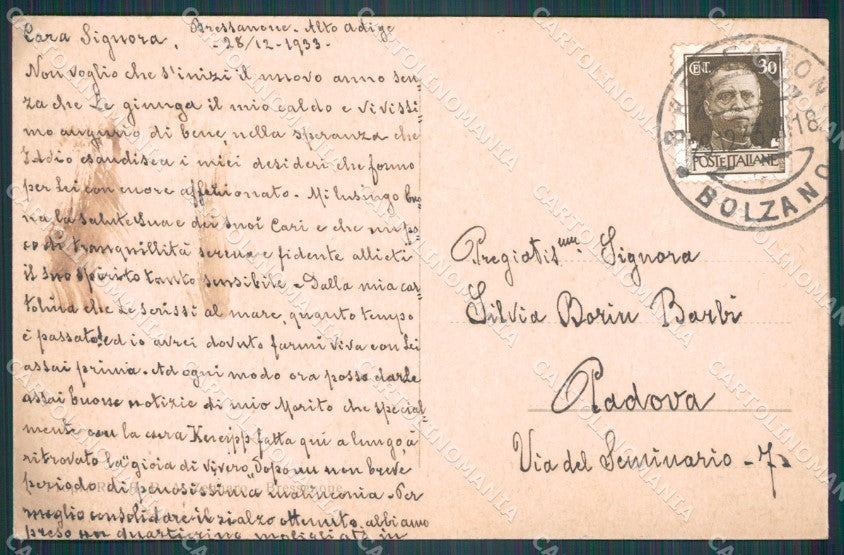 Bressanone - Alto Adige
- 28/12-1933 -
Cara Signora,
Non voglio che s'inizi il nuovo anno sen=
za che Le giunga il mio caldo e vivissi=
mo augurio di bene, nella speranza che
Iddio esaudisca i miei desideri che formo
per Lei con cuore affezionato. Mi lusingo buo=
na la salute Sua e dei Suoi Cari e che un po=
co di tranquillità serena e fidente allieti
il suo spirito tanto sensibile. Dalla mia car=
tolina che Le scrissi al mare, quanto tempo
è passato! ed io avrei dovuto farmi viva con Lei
assai prima. Ad ogni modo ora posso darLe
assai buone notizie di mio Marito che special=
mente con la cura Kneipp fatta qui a lungo, à
ritrovato la "gioia di vivere" dopo un non breve
periodo di penosissima malinconia. Per
meglio consolidare il rialzo ottenuto, abbiamo
preso un quartierino
in
CENT. 30
POSTE ITALIANE
BOLZANO
Pregiatis.ma Signora
Silvia Borin Barbi
Padova
Via del Seminario - 7
CARTOLINOMANIA